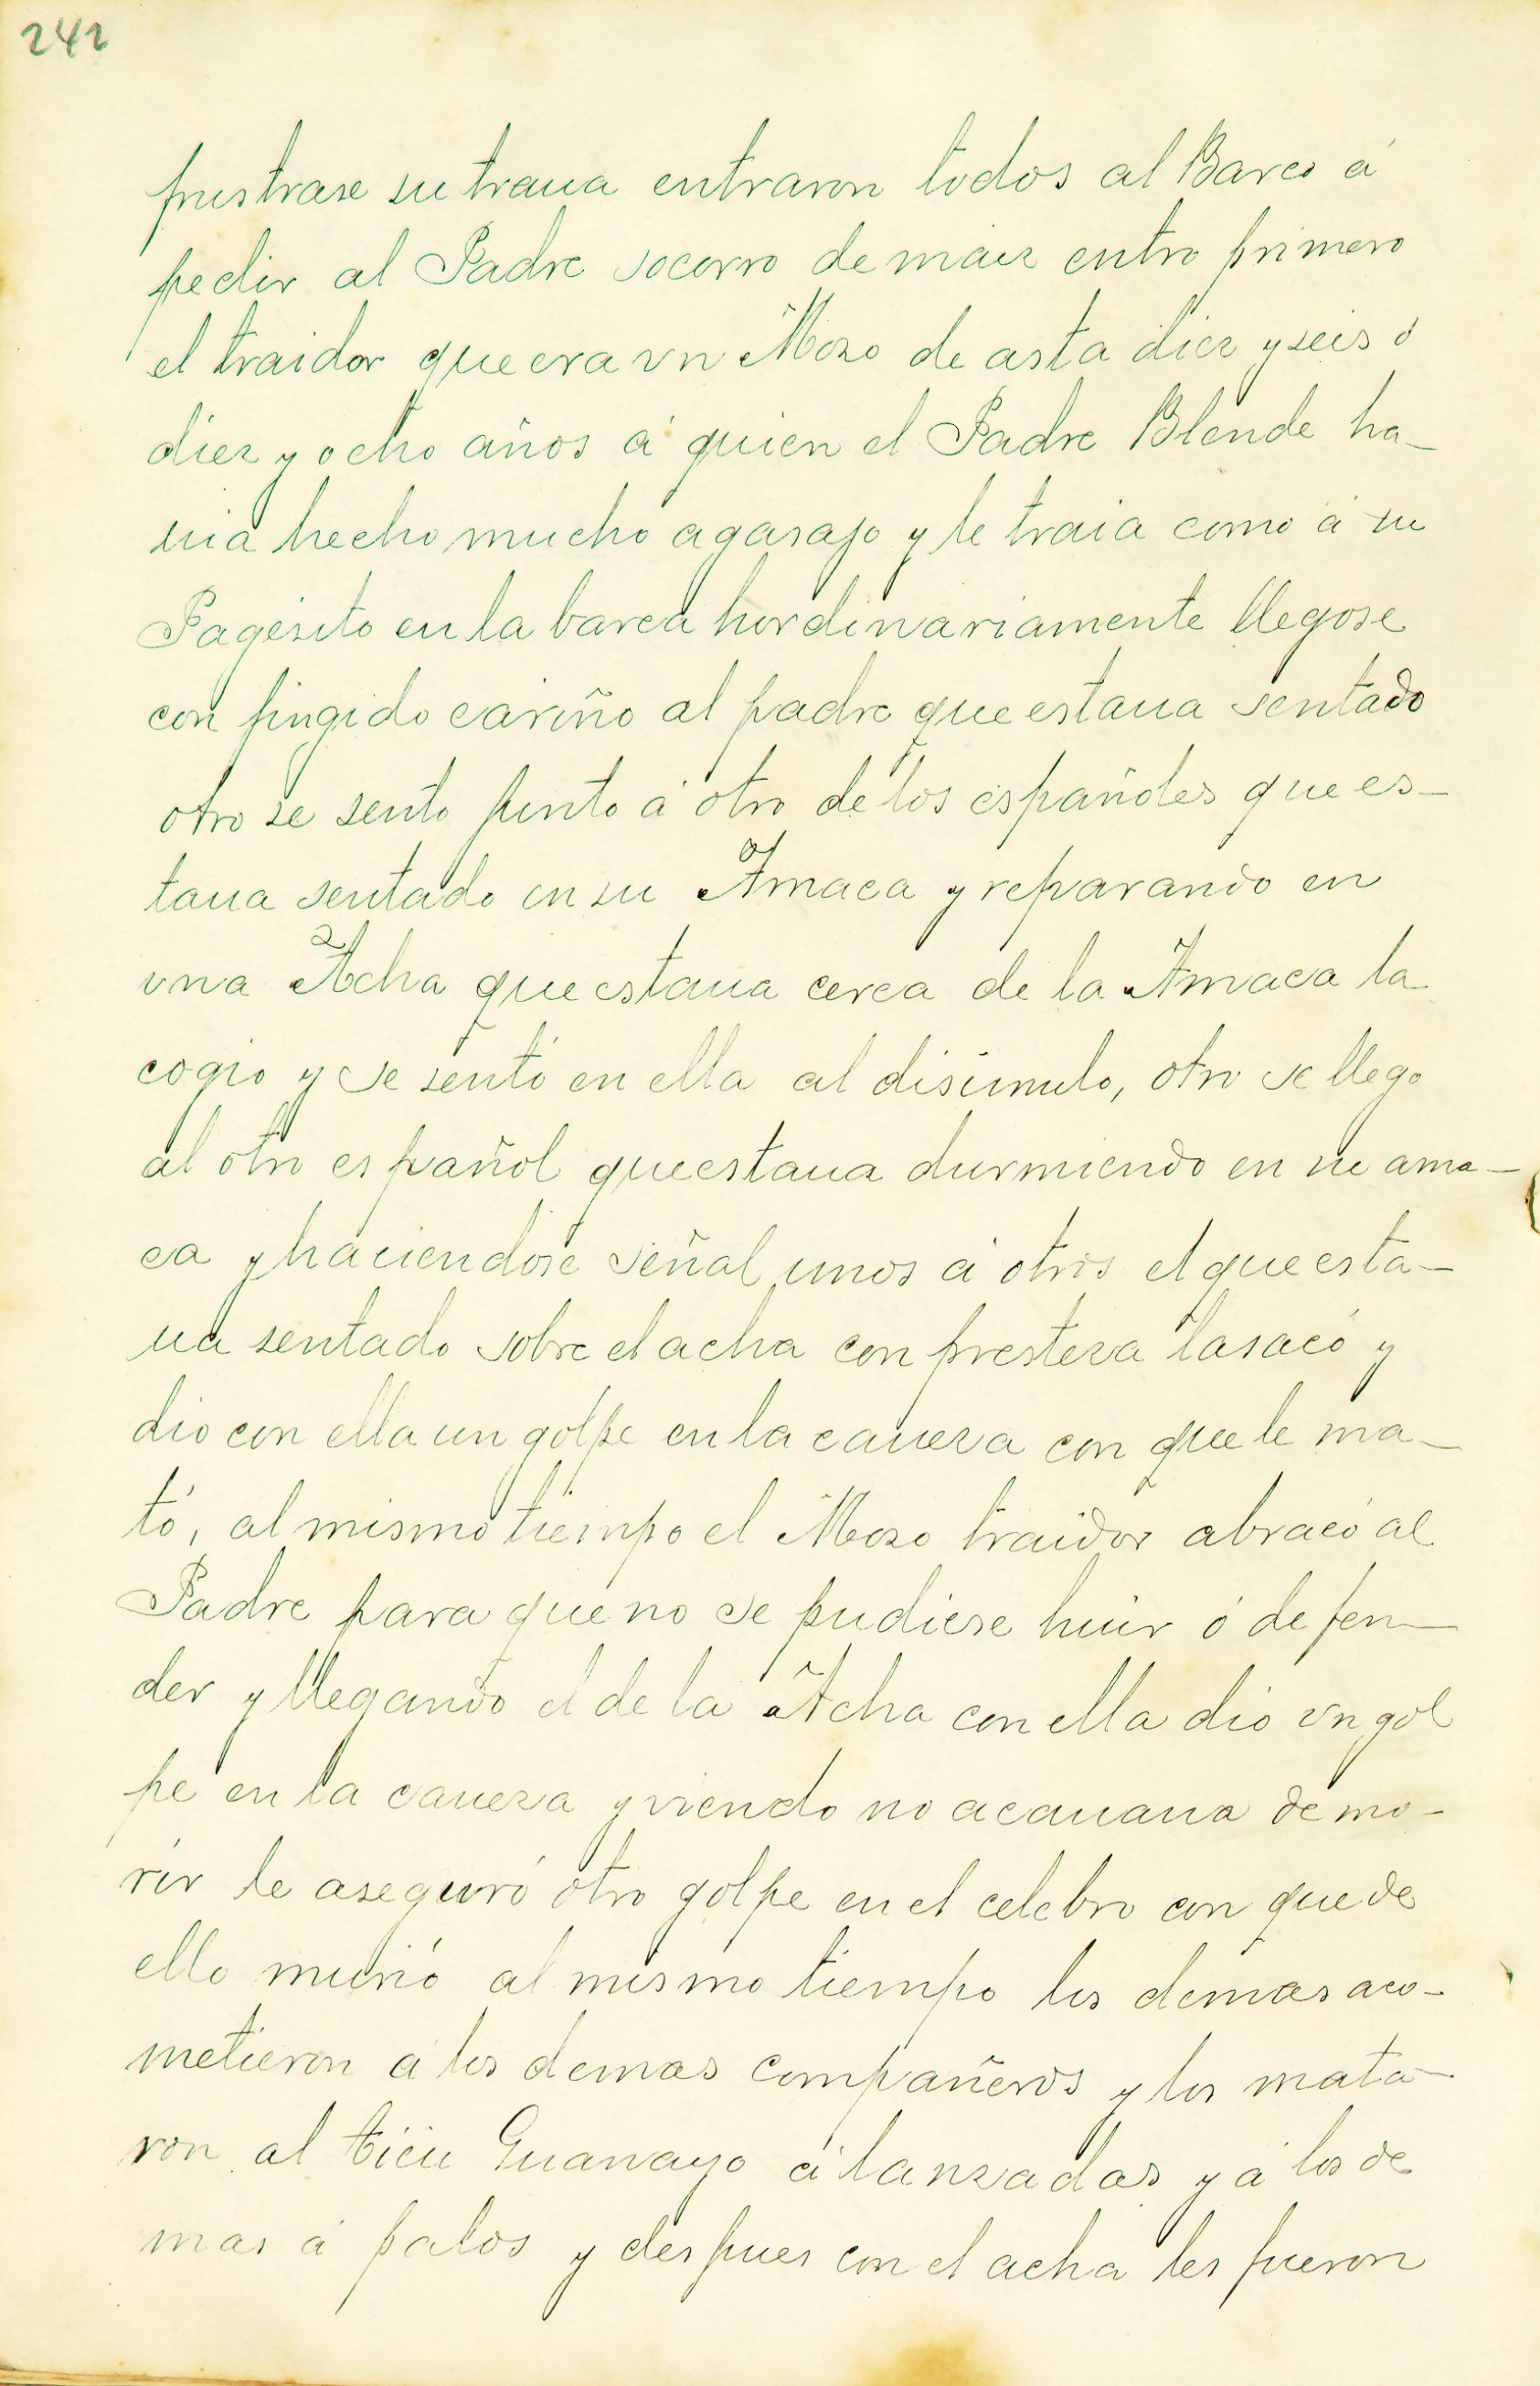 242
frustrase su traua entraron todos al Barco á
pedir al Padre socorro de maiz entro primero
el traidor que era vn Mozo de asta diez y seis ó
diez y ocho años á quien el Padre Blende ha-
uia hecho mucho agasajo y le traia como á su
Pagesito en la barca hordinariamente llegose
con fingido cariño al padre que estaua sentado
otro se sento junto á otro de los españoles que es-
taua sentado en su Amaca y reparando en
vna Acha que estaua cerca de la Amaca la
cogio y se sentó en ella al disimulo, otro se llego
al otro español que estaua durmiendo en su ama-
ca y haciendose señal unos á otros el que esta-
ua sentado sobre el acha con presteza la sacó y
dio con ella un golpe en la caueza con que le ma-
tó, al mismo tiempo el Mozo traidor abracó al
Padre para que no se pudiese huir ó defen-
der y llegando el de la Acha con ella dio vn gol
pe en la caueza y viendo no acauaua de mo-
rir le aseguró otro golpe en el celebro con que de
ello murió al mismo tiempo los demas aco-
metieron á los demas compañeros y los mata-
ron al Guanayo á lanzadas y á los de
mas á palos y despues con el acha les fueron